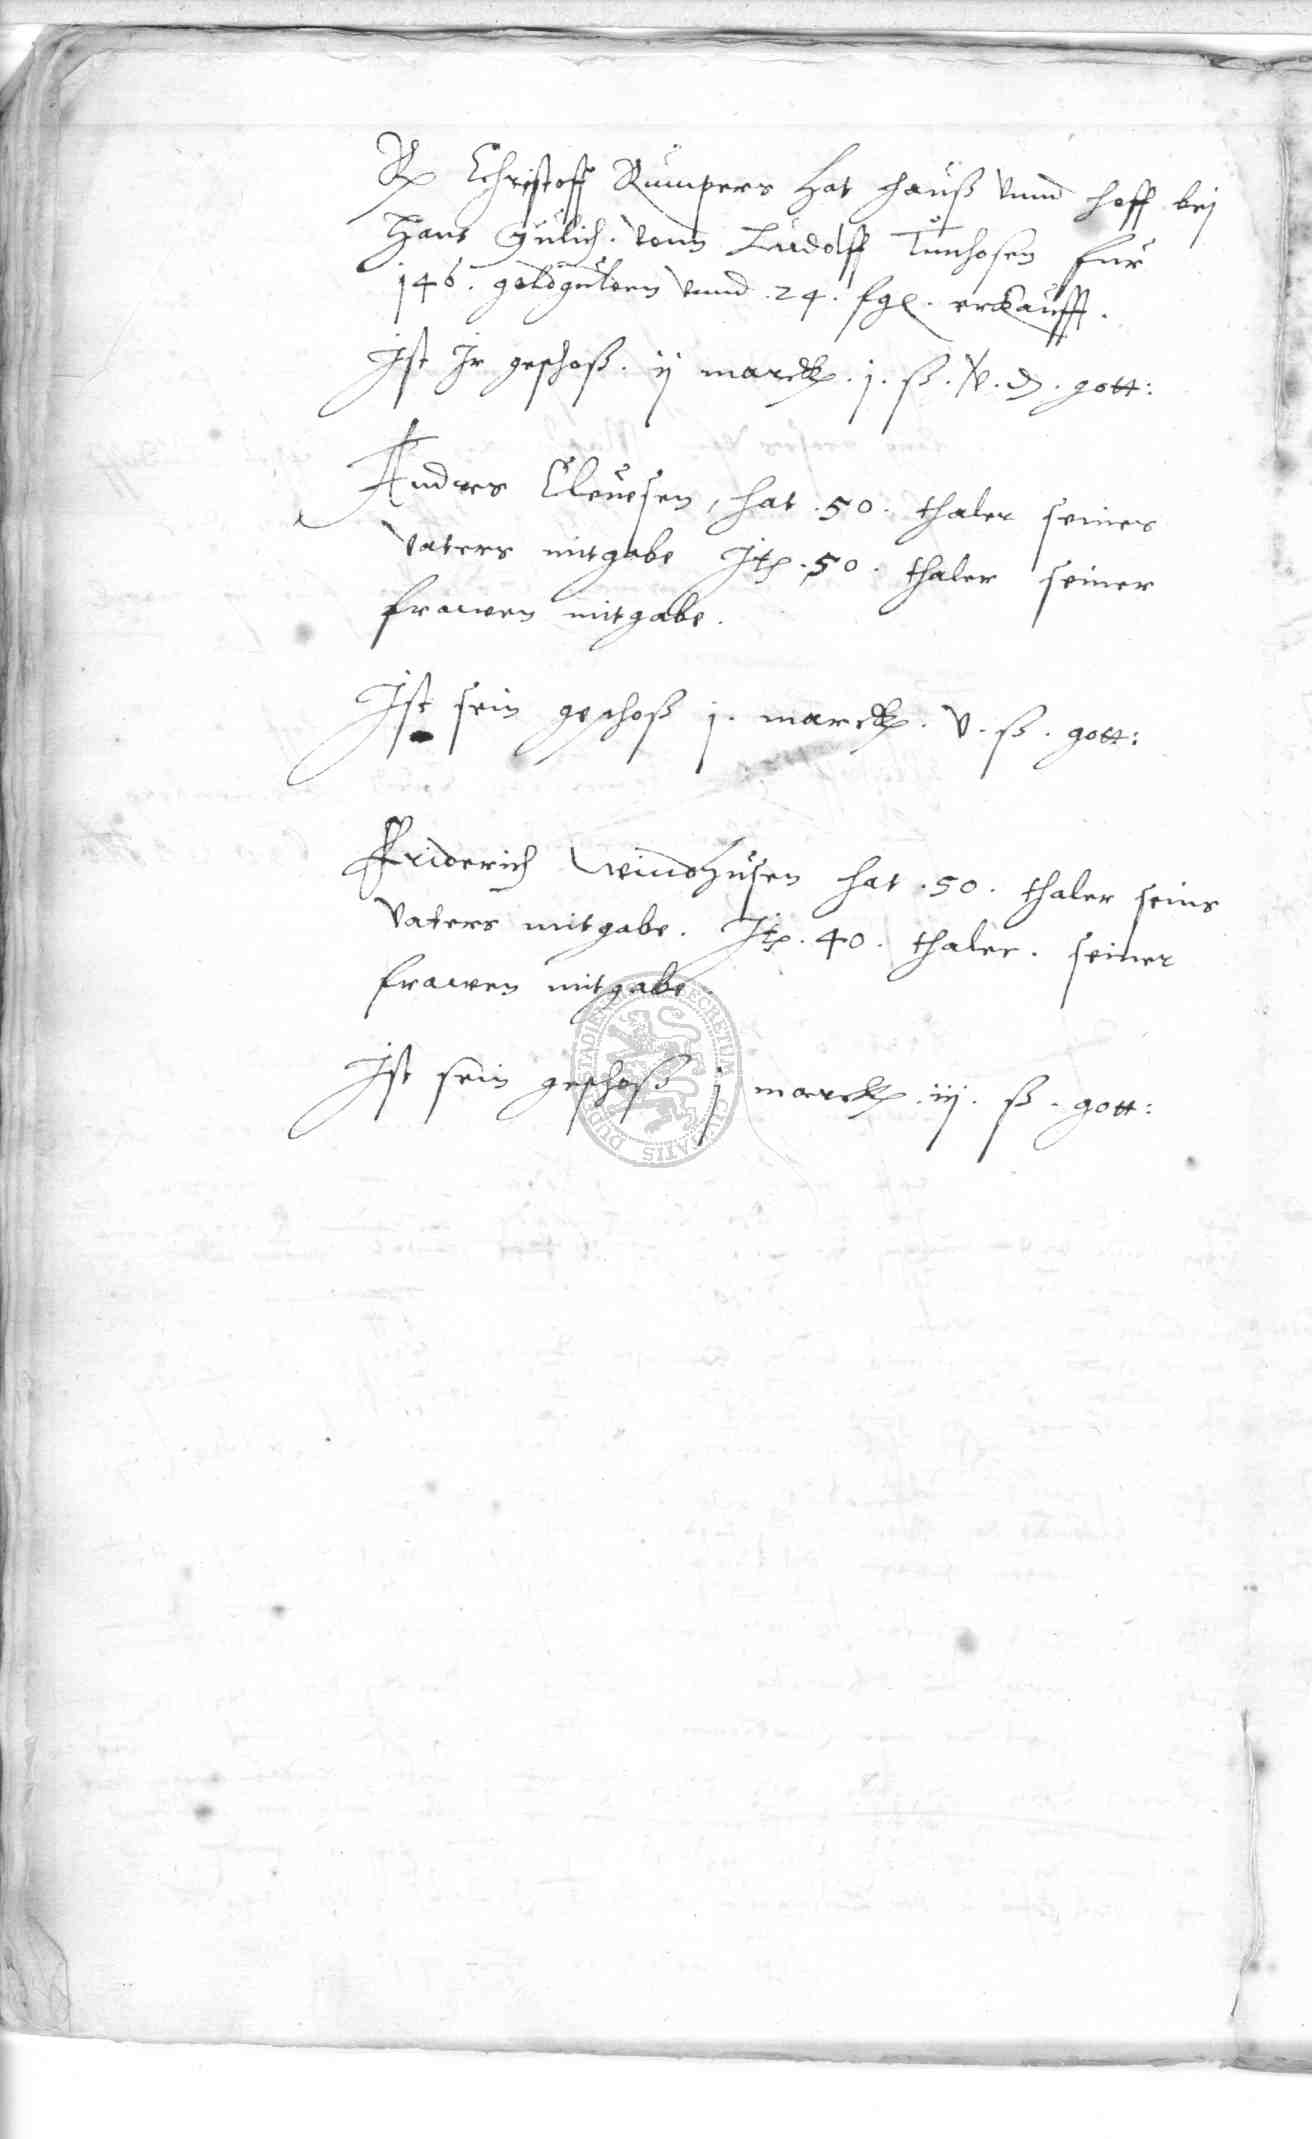 Rp Christoff Rumpers hat hauß vnnd hoff bei
Hans Gulich. vonn Ludolff Tunhosen fur
146. goldgulden vnnd .24. sgl. erkaufft.
Ist Ir geschoß. ij marck. j. ß. v. d. gott:
Andres Cleuesen, hat .50. thaler seines
vaters mitgabe Itp .50. thaler seiner
frawen mitgabe.
Ist sein geschoß j. marck. v. ß. gott:
Friderich Windhusen hat .50. thaler seins
vaters mitgabe. Itp. 40. thaler. seiner
frawen mitgabe.
Ist sein geschoß j marck. iij. ß. gott:
SECRETUM CIVITATIS